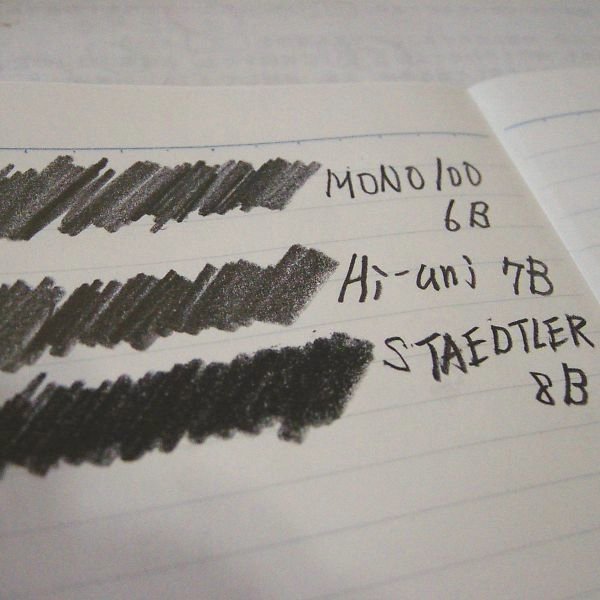 MONO100
6B
Hi-uni 7B
STAEDTLER
8B